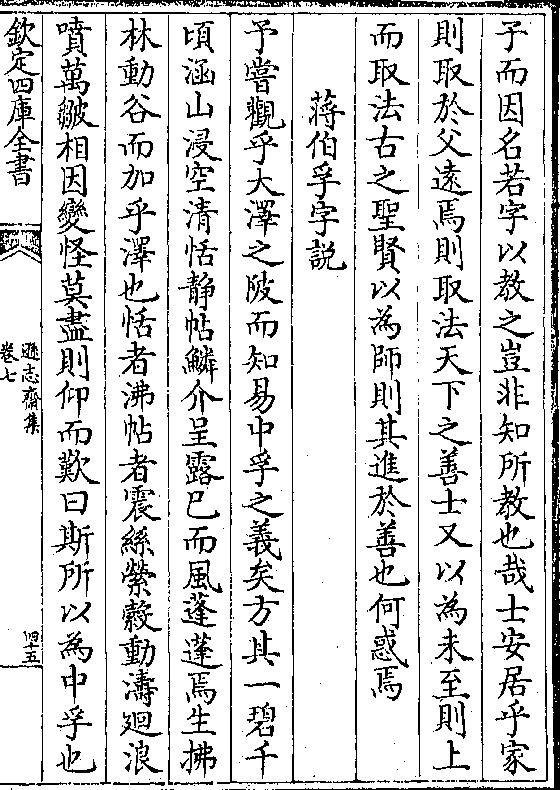 子而因名若字以教之豈非知所教也哉士安居乎家
則取於父遠焉則取法天下之善士又以為未至則上
而取法古之聖賢以為師則其進於善也何惑焉
蔣伯孚字説
予嘗觀乎大澤之陂而知易中孚之義矣方其一碧千
頃涵山浸空清恬静帖鱗介呈露已而風蓬蓬焉生拂
林動谷而加乎澤也恬者沸帖者震絲縈縠動濤廻浪
噴萬皴相因變怪莫盡則仰而歎曰斯所以為中孚也
欽定四庫全書
遜志齋集
卷七
四十五